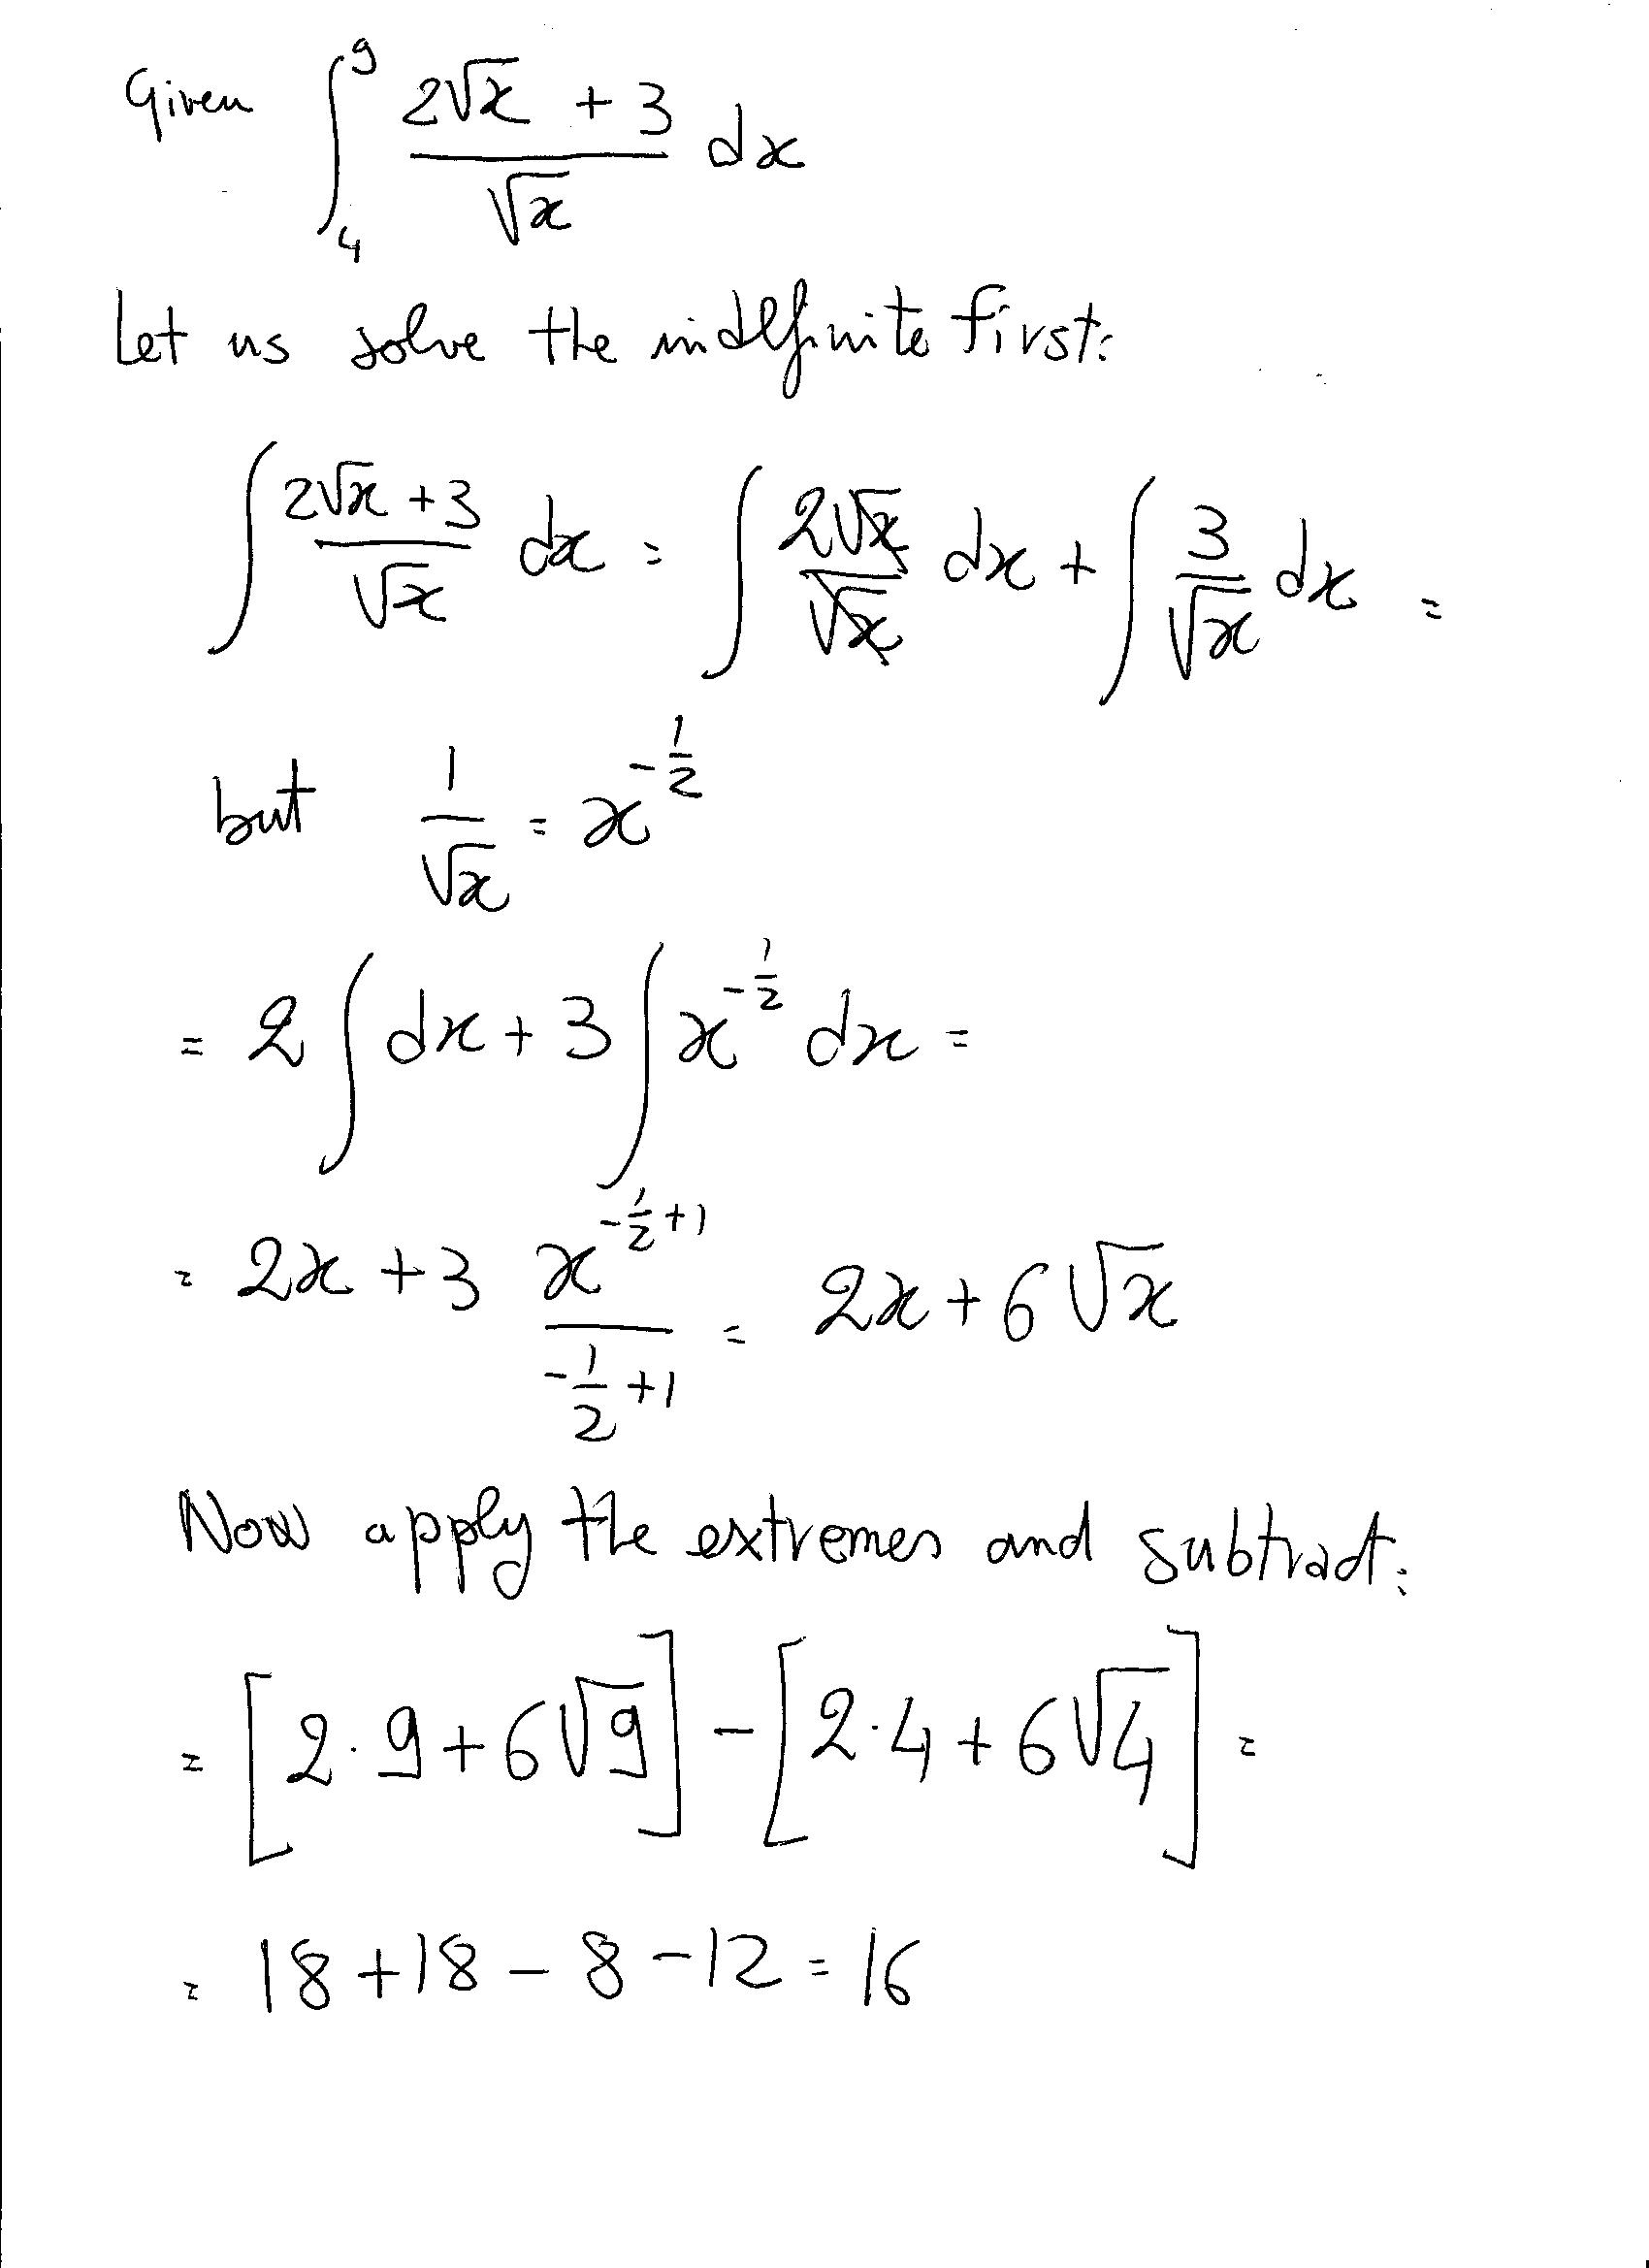 Given ∫₄⁹ (2√x + 3)/√x dx
Let us solve the indefinite first:
∫ (2√x + 3)/√x dx = ∫ 2√x/√x dx + ∫ 3/√x dx =
but 1/√x = x^(-1/2)
= 2 ∫ dx + 3 ∫ x^(-1/2) dx =
= 2x + 3 x^(-1/2 + 1)/(-1/2 + 1) = 2x + 6√x
Now apply the extremes and subtract:
= [2·9 + 6√9] - [2·4 + 6√4] =
= 18 + 18 - 8 - 12 = 16